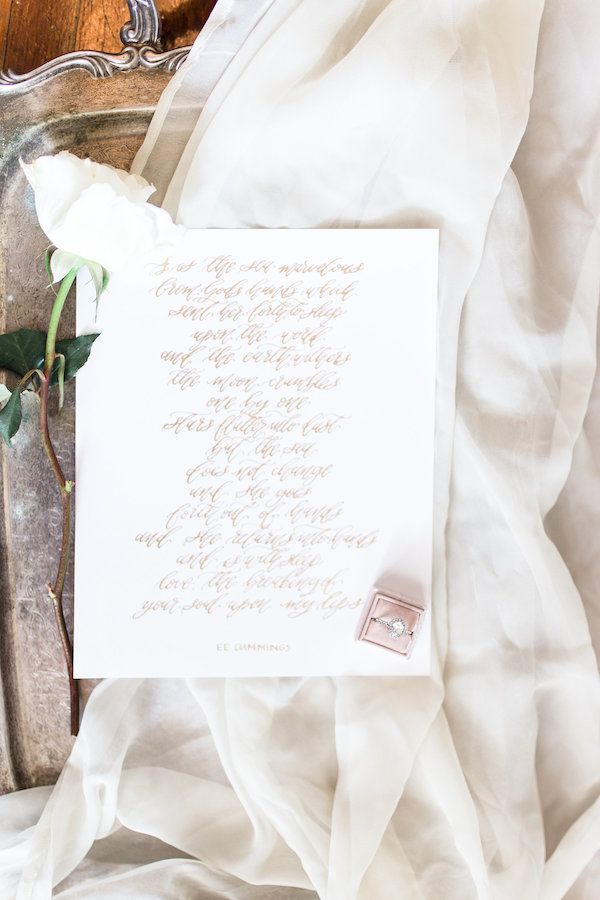 as is the sea marvelous
from God's hands which
sent her forth to sleep
upon the world
and the earth withers
the moon crumbles
one by one
stars flutter into dust
but the sea
does not change
and she goes
forth out of hands
and she returns into hands
and is with sleep
love, the breaking of
your soul upon my lips
EE CUMMINGS